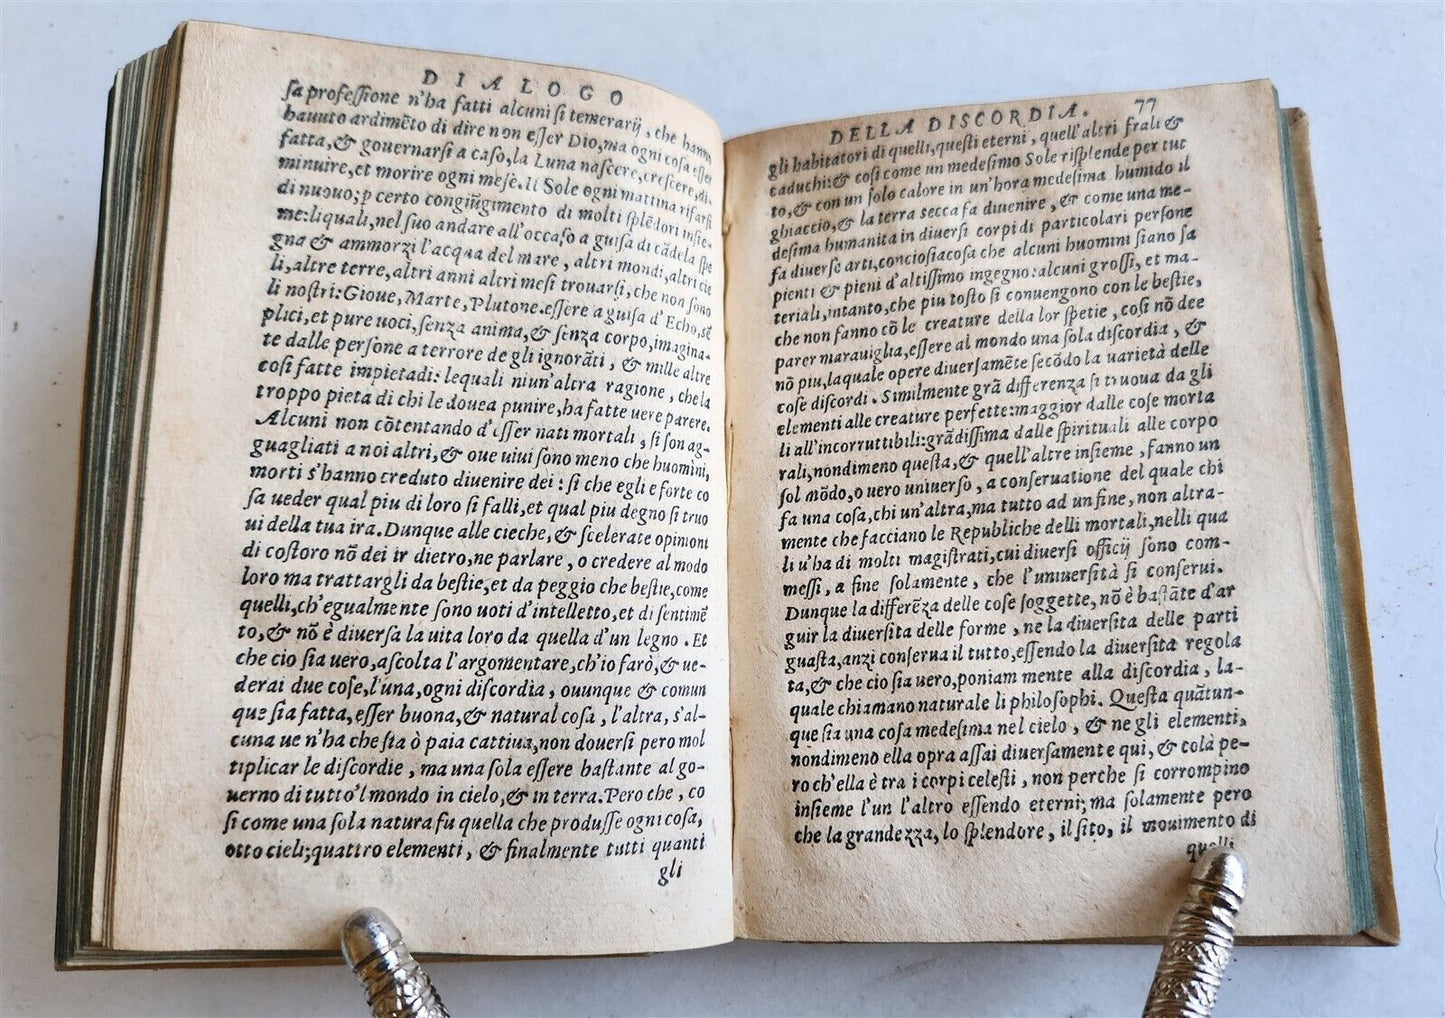 DIALOGO
ſa profeſſione n'ha fatti alcuni ſi temerarij, che hanno
hauuto ardimẽto di dire non eſſer Dio, ma ogni coſa eſſer
fatta, & gouernarſi a caſo, la Luna naſcere, creſcere, di-
minuire, et morire ogni meſe. Il Sole ogni mattina rifarſi
di nuouo; p certo congiũgimento di molti ſplẽdori inſie-
me: liquali, nel ſuo andare all'occaſo a guiſa di cãdela ſpe
gna & ammorzi l'acqua del mare, altri mondi, altri cie
li, altre terre, altri anni altri meſi trouarſi, che non ſono
li noſtri: Gioue, Marte, Plutone. eſſere a guiſa d'Echo, sẽ
plici, et pure uoci, ſenza anima, & ſenza corpo, imagina-
te dalle perſone a terrore de gli ignorãti, & mille altre
coſi fatte impietadi: lequali niun'altra ragione, che la
troppo pieta di chi le douea punire, ha fatte uere parere.
Alcuni non cõtentando d'eſſer nati mortali, ſi ſon ag-
guagliati a noi altri, & oue uiui ſono meno che huomini,
morti s'hanno creduto diuenire dei: ſi che egli e forte co
ſa ueder qual piu di loro ſi falli, et qual piu degno ſi truo
ui della tua ira. Dunque alle cieche, & ſcelerate opinioni
di coſtoro nõ dei ir dietro, ne parlare, o credere al modo
loro ma trattargli da beſtie, et da peggio che beſtie, come
quelli, ch'egualmente ſono uoti d'intelletto, et di ſentimẽ
to, & nõ è diuerſa la uita loro da quella d'un legno. Et
che cio ſia uero, aſcolta l'argomentare, ch'io farò, & ue-
derai due coſe, l'una, ogni diſcordia, ouunque & comun
que ſia fatta, eſſer buona, & natural coſa, l'altra, s'al-
cuna ue n'ha che ſia ò paia cattiua, non douerſi pero mol
tiplicar le diſcordie, ma una ſola eſſere baſtante al go-
uerno di tutto'l mondo in cielo, & in terra. Pero che, co
ſi come una ſola natura fu quella che produſſe ogni coſa,
otto cieli; quattro elementi, & finalmente tutti quanti
gli
DELLA DISCORDIA. 77
gli habitatori di quelli, queſti eterni, quell'altri frali &
caduchi: & coſi come un medeſimo Sole riſplende per tut
to, & con un ſolo calore in un'hora medeſima humido il
ghiaccio, & la terra secca fa diuenire, & come una me-
deſima humanita in diuerſi corpi di particolari perſone
fa diuerſe arti, concioſiacoſa che alcuni huomini ſiano ſa
pienti & pieni d'altiſſimo ingegno: alcuni groſſi, et ma-
teriali, intanto, che piu toſto ſi conuengono con le beſtie,
che non fanno cõ le creature della lor ſpetie, coſi nõ dee
parer marauiglia, eſſere al mondo una ſola diſcordia, &
nõ piu, laquale opere diuerſamẽte ſecõdo la uarietà delle
coſe diſcordi. Similmente grã differenza ſi truoua da gli
elementi alle creature perfette: maggior dalle coſe morta
li all'incorruttibili: grãdiſſima dalle ſpirituali alle corpo
rali, nondimeno queſta, & quell'altre inſieme, fanno un
ſol mõdo, o uero uniuerſo, a conſeruatione del quale chi
fa una coſa, chi un'altra, ma tutto ad un fine, non altra-
mente che facciano le Republiche delli mortali, nelli qua
li u'ha di molti magiſtrati, cui diuerſi officij ſono com-
meſſi, a fine ſolamente, che l'uniuerſità ſi conſerui.
Dunque la differẽza delle coſe ſoggette, nõ è baſtãte d'ar
guir la diuerſita delle forme, ne la diuerſita delle parti
guaſta, anzi conſerua il tutto, eſſendo la diuerſita regola
ta, & che cio ſia uero, poniam mente alla diſcordia, la-
quale chiamano naturale li philoſophi. Queſta quãtun-
que ſia una coſa medeſima nel cielo, & ne gli elementi,
nondimeno ella opra aſſai diuerſamente qui, & colà pe-
ro ch'ella è tra i corpi celeſti, non perche ſi corrompino
inſieme l'un l'altro eſſendo eterni; ma ſolamente pero
che la grandezza, lo ſplendore, il ſito, il mouimento di
quelli